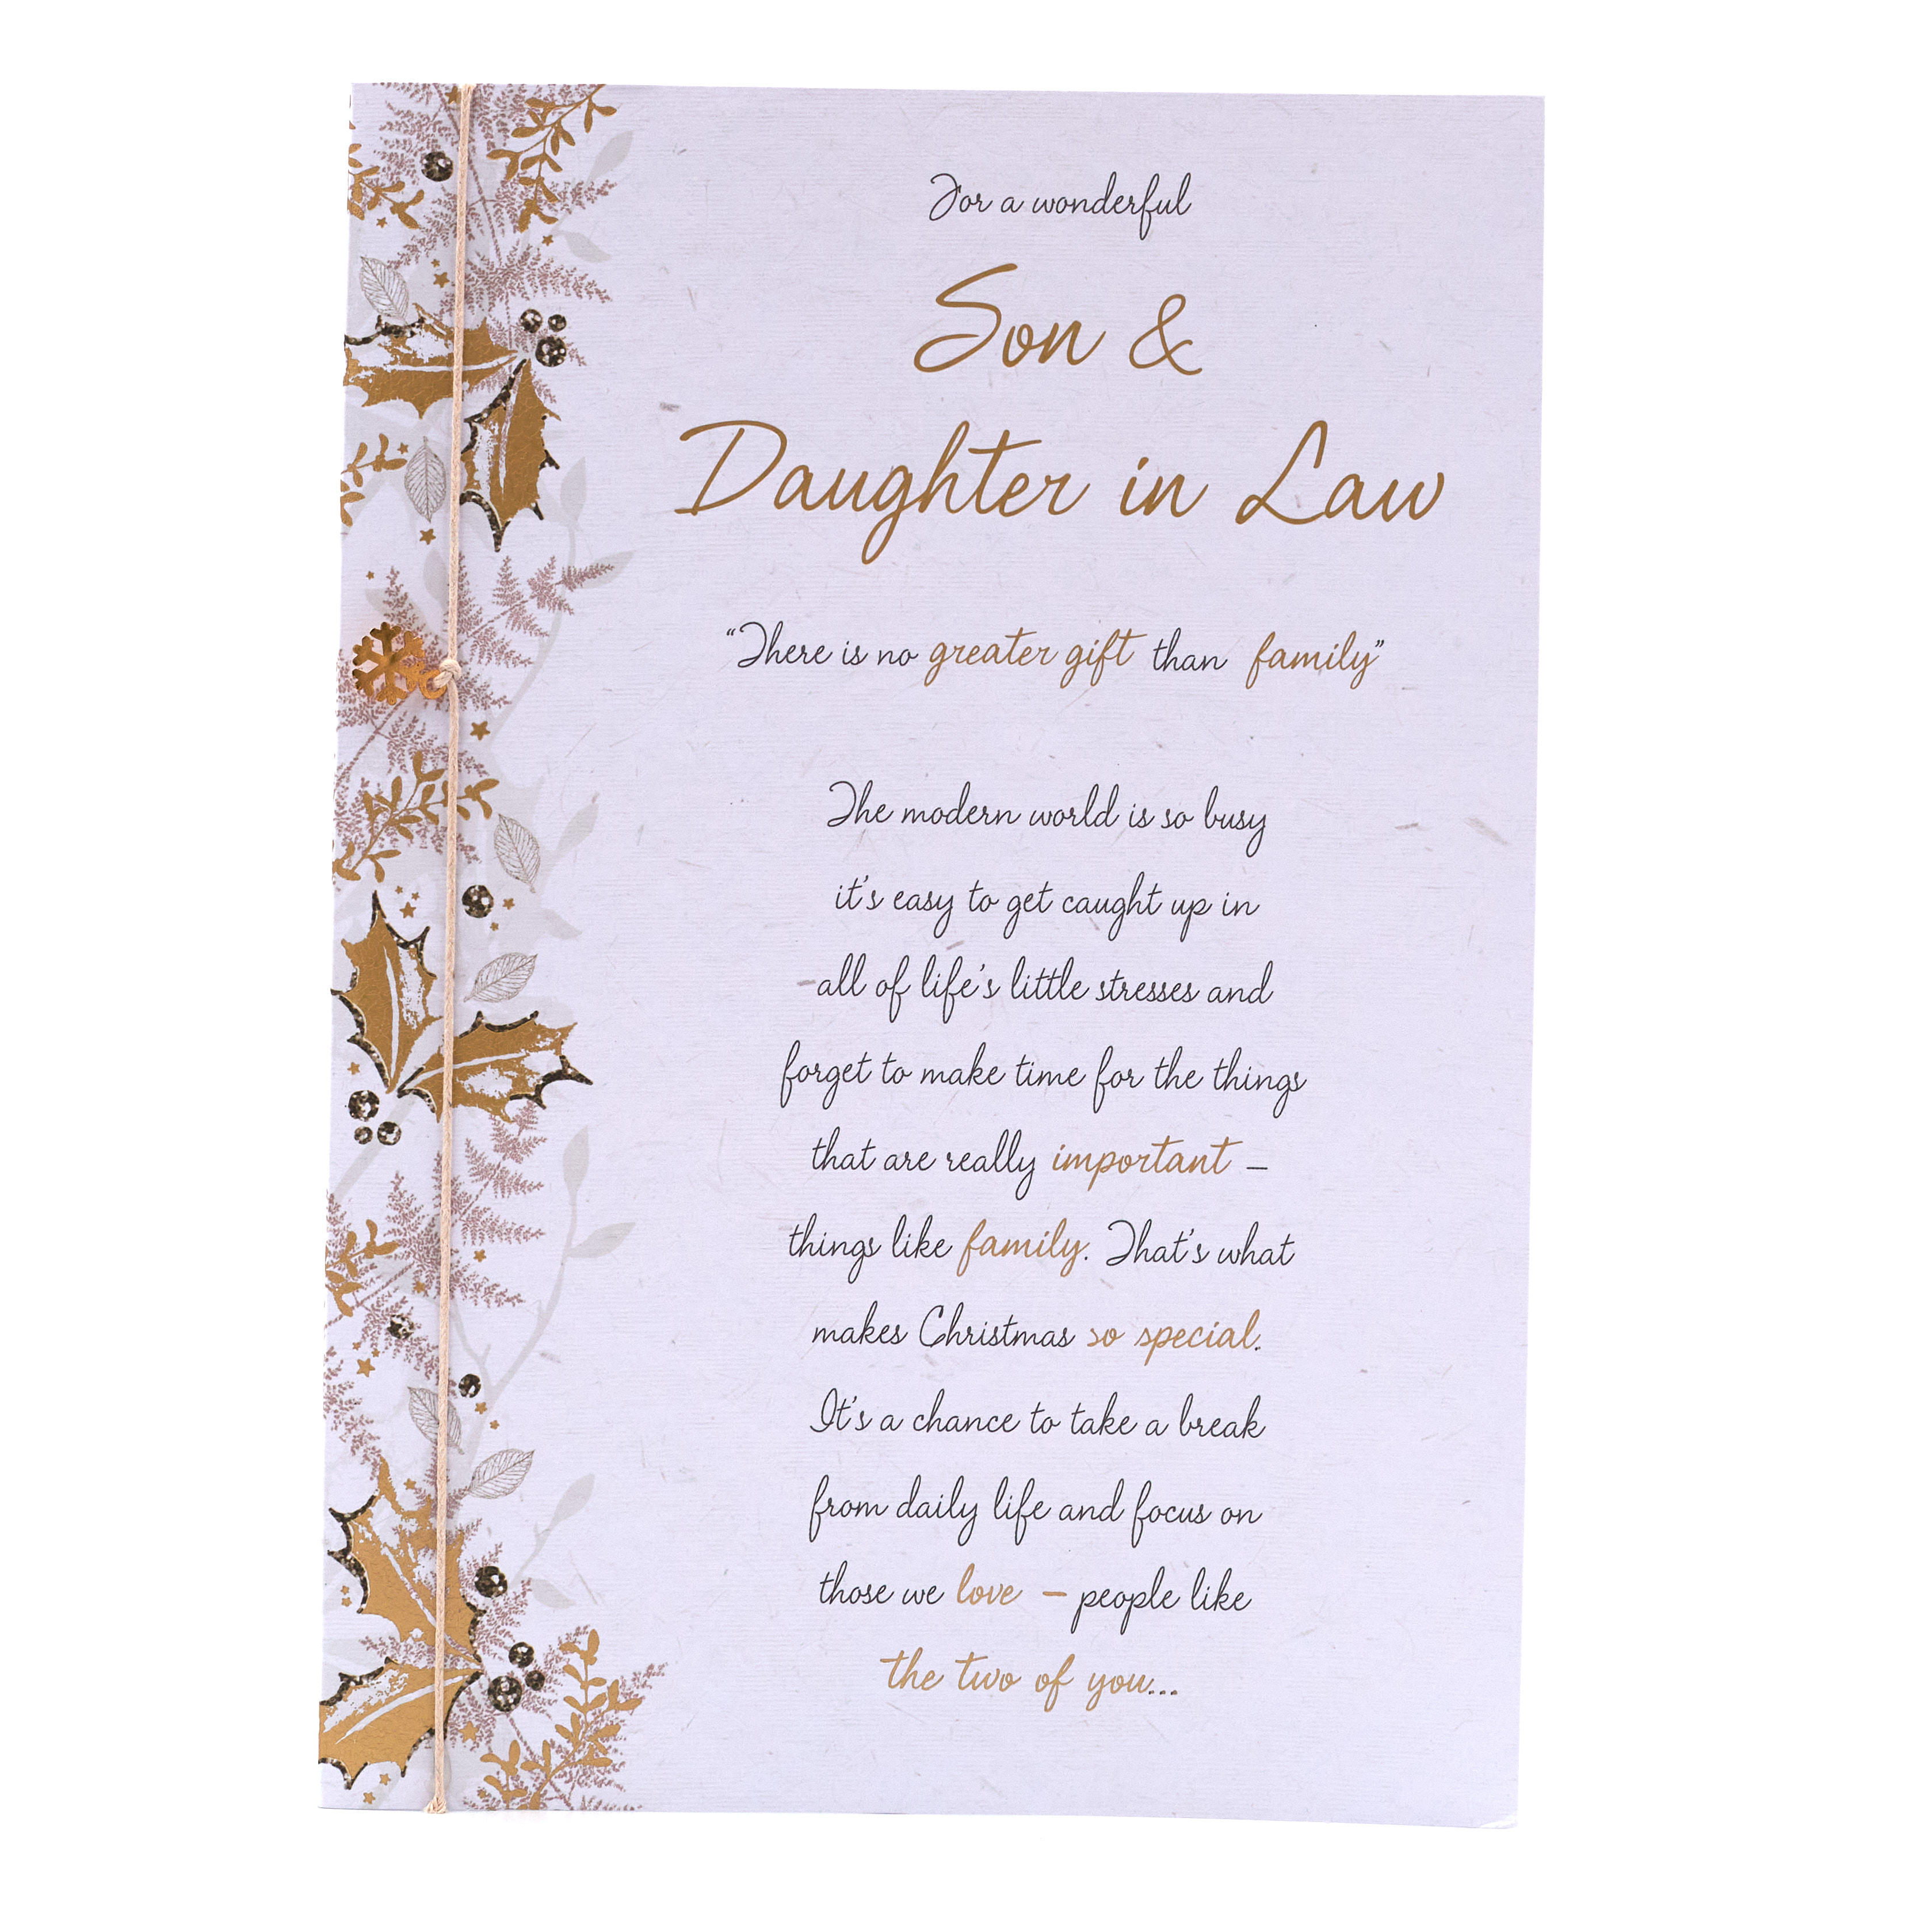 For a wonderful
Son &
Daughter in Law
“There is no greater gift than family”
The modern world is so busy
it's easy to get caught up in
all of life's little stresses and
forget to make time for the things
that are really important –
things like family. That's what
makes Christmas so special.
It's a chance to take a break
from daily life and focus on
those we love – people like
the two of you...